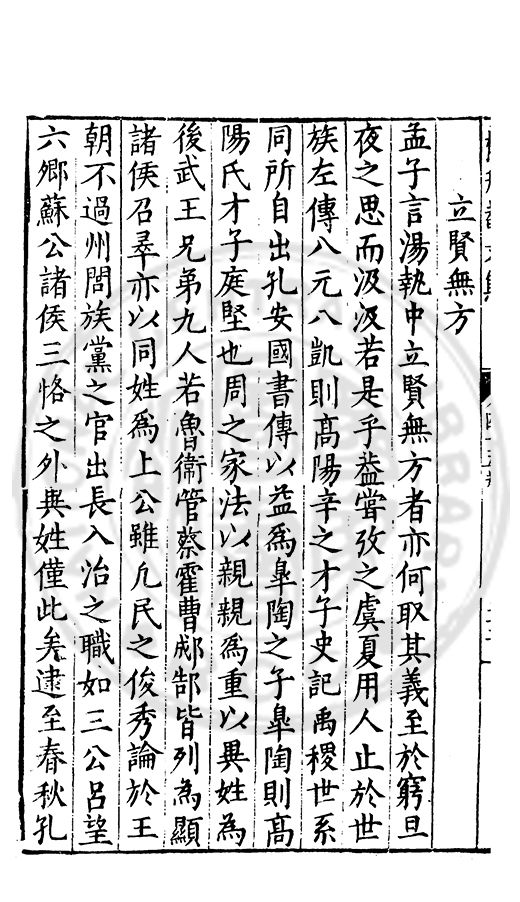 立賢無方
孟子言湯執中立賢無方者亦何取其義至於窮旦
夜之思而汲汲若是乎葢嘗攷之虞夏用人止於世
族左傳八元八凱則高陽辛之才子史記禹稷世系
同所自出孔安國書傳以益爲臯陶之子臯陶則高
陽氏才子庭堅也周之家法以親親爲重以異姓爲
後武王兄弟九人若魯衞管蔡霍曹郕郜皆列為顯
諸侯召髸亦以同姓爲上公雖凢民之俊秀論於王
朝不過州閭族黨之官出長入治之職如三公呂望
六鄉蘇公諸侯三恪之外異姓僅此矣逮至春秋孔